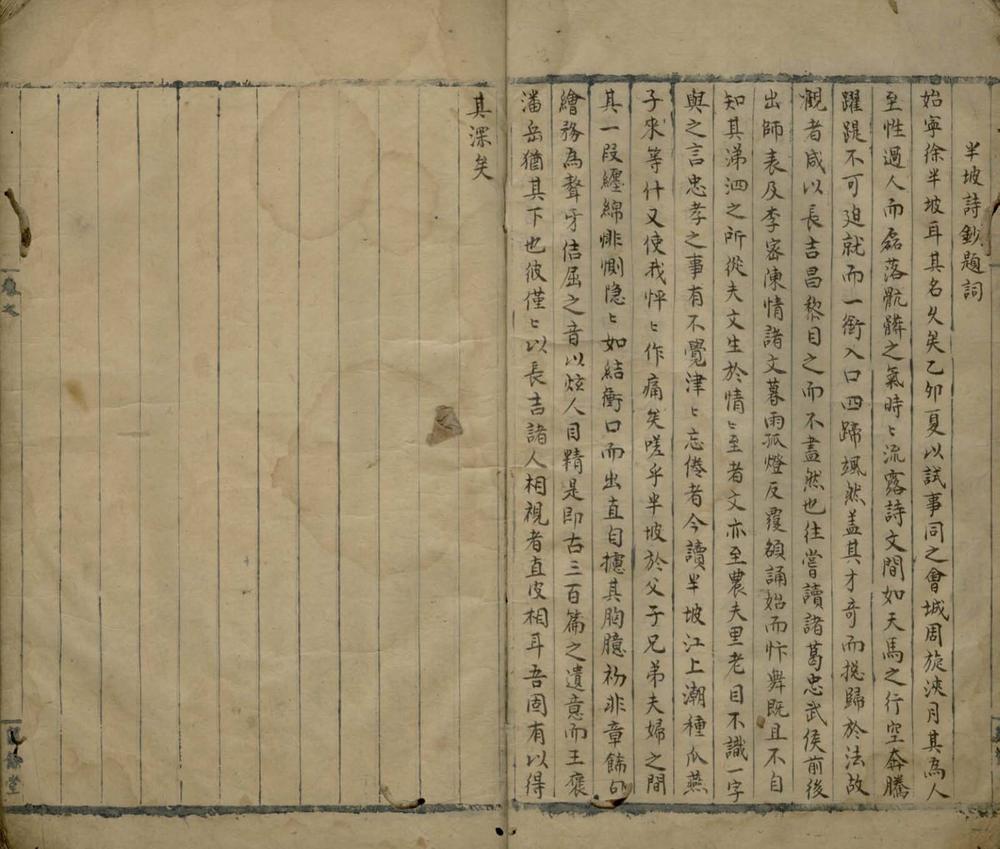 半坡詩鈔題詞
始寧徐半坡耳其名久矣乙卯夏以試事同之會城周旋浹月其為人
至性過人而磊落骯髒之氣時〻流露詩文間如天馬之行空奔騰
躍踶不可廹就而一銜入口四蹄颯然盖其才奇而揔歸於法故
觀者咸以長吉昌黎目之而不盡然也往嘗讀諸葛忠武侯前後
出師表及李密陳情諸文暮雨孤燈反覆頟誦始而忭舞既且不自
知其涕泗之所從夫文生於情〻至者文亦至農夫里老目不識一字
與之言忠孝之事有不覺津〻忘倦者今讀半坡江上潮種瓜燕
子來等什又使我怦〻作痛矣嗟乎半坡於父子兄弟夫婦之間
其一段纒綿悱惻隐〻如結衝口而出直自攄其胸臆初非章餙句
繪務為聱牙佶屈之音以炫人目精是即古三百篇之遺意而王褒
潘岳猶其下也彼僅〻以長吉諸人相視者直皮相耳吾固有以得
其深矣